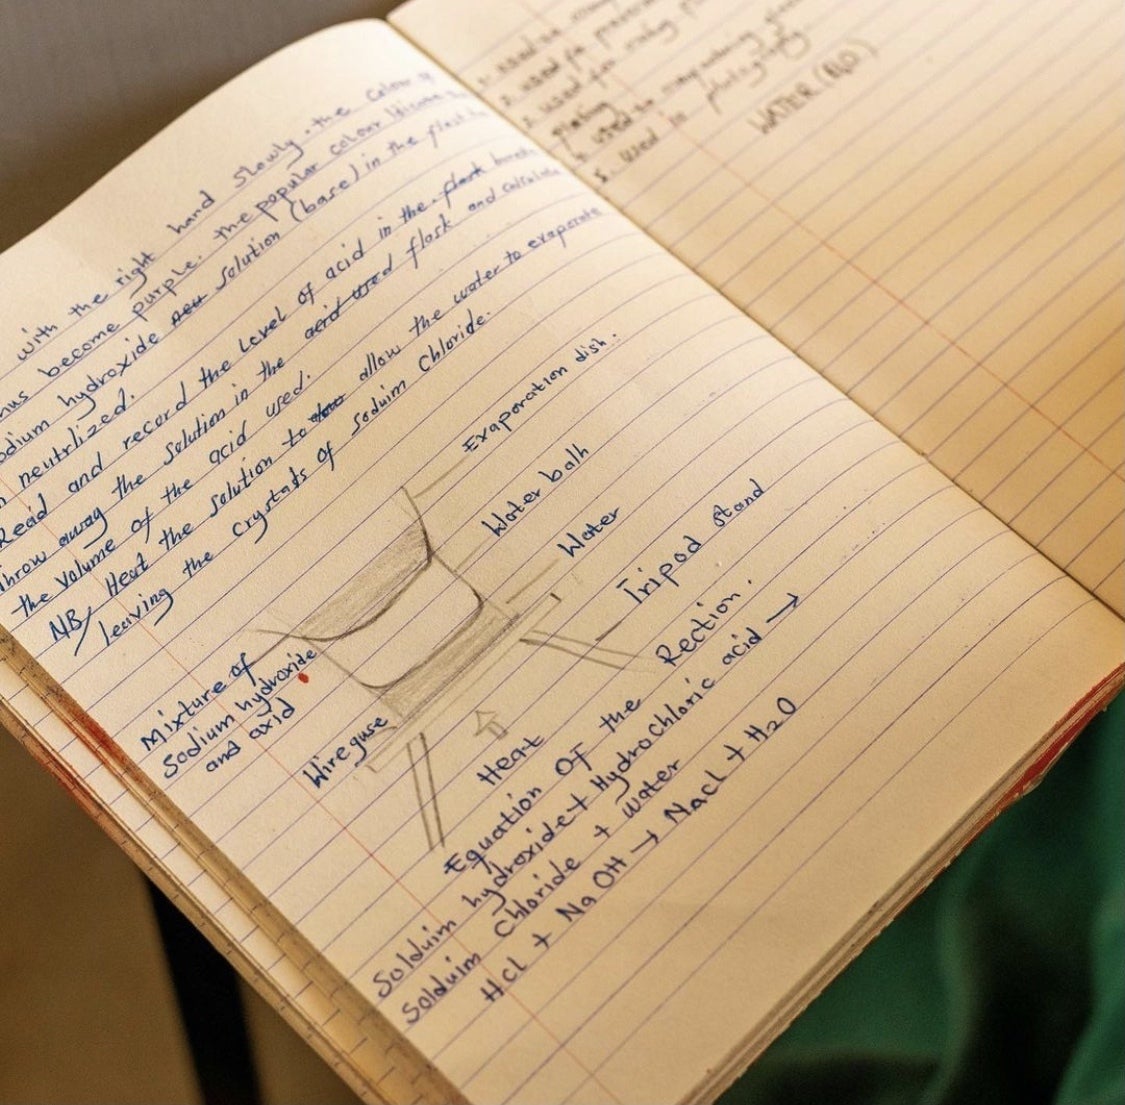 with the right hand slowly. the colour of
become purple. the popular colour
hydroxide solution (base) in the flask
neutrlized.
Read and record the level of acid in the flask
Throw away the solution in the acid used flask and calculate
the volume of the acid used.
NB/ Heat the solution to allow the water to evaporate
leaving the crystals of soduim chloride.
Evaporation dish:
Water balh
Water
Tripod stand
Mixture of
Sodium hydroxide
and axid
Wire guse
Heat
Equation of the Rection.
Solduim hydroxide + Hydrochloric acid →
Solduim chloride + water
HCl + NaOH → Nacl + H2O
1. Used
2. used for
3. used for
plating
4. used
5. used in photography
WATER (H2O)